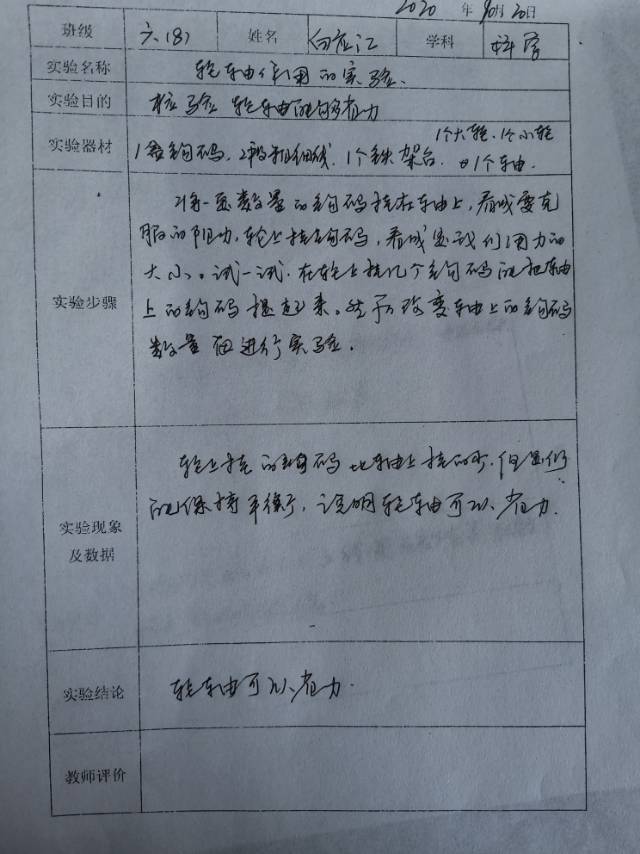 2020 年 10月 20日
班级 六(8) 姓名 向应江 学科 科学
实验名称 轮轴作用的实验.
实验目的 检验 轮轴能够省力
1个大轮、1个小轮
实验器材 1盒钩码、2根粗细线、1个铁架台、1个车由.
将一定数量的钩码挂在车由上,看成要克
服的阻力,轮上挂钩码,看成是我们用力的
大小。试一试.在轮上挂几个钩码能把车由
实验步骤 上的钩码提起来。然后改变车由上的钩码
数量 再进行实验.
轮上挂的钩码比车由上挂的少.但它们
能保持平衡,说明轮车由可以省力.
实验现象
及数据
实验结论 轮车由可以省力.
教师评价